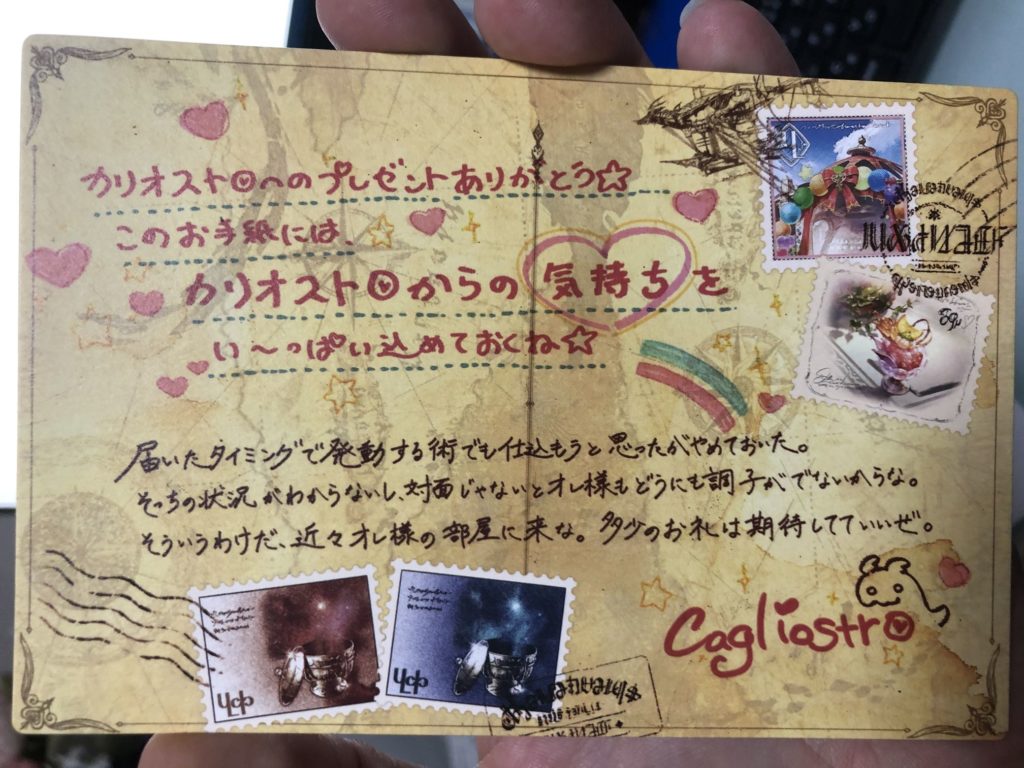 カリオストロへのプレゼントありがとう☆
このお手紙には、
カリオストロからの気持ちを
い〜っぱい込めておくね☆
届いたタイミングで発動する術でも仕込もうと思ったがやめておいた。
そっちの状況がわからないし、対面じゃないとオレ様もどうにも調子がでないからな。
そういうわけだ、近々オレ様の部屋に来な。多少のお礼は期待してていいぜ。
Cagliostro